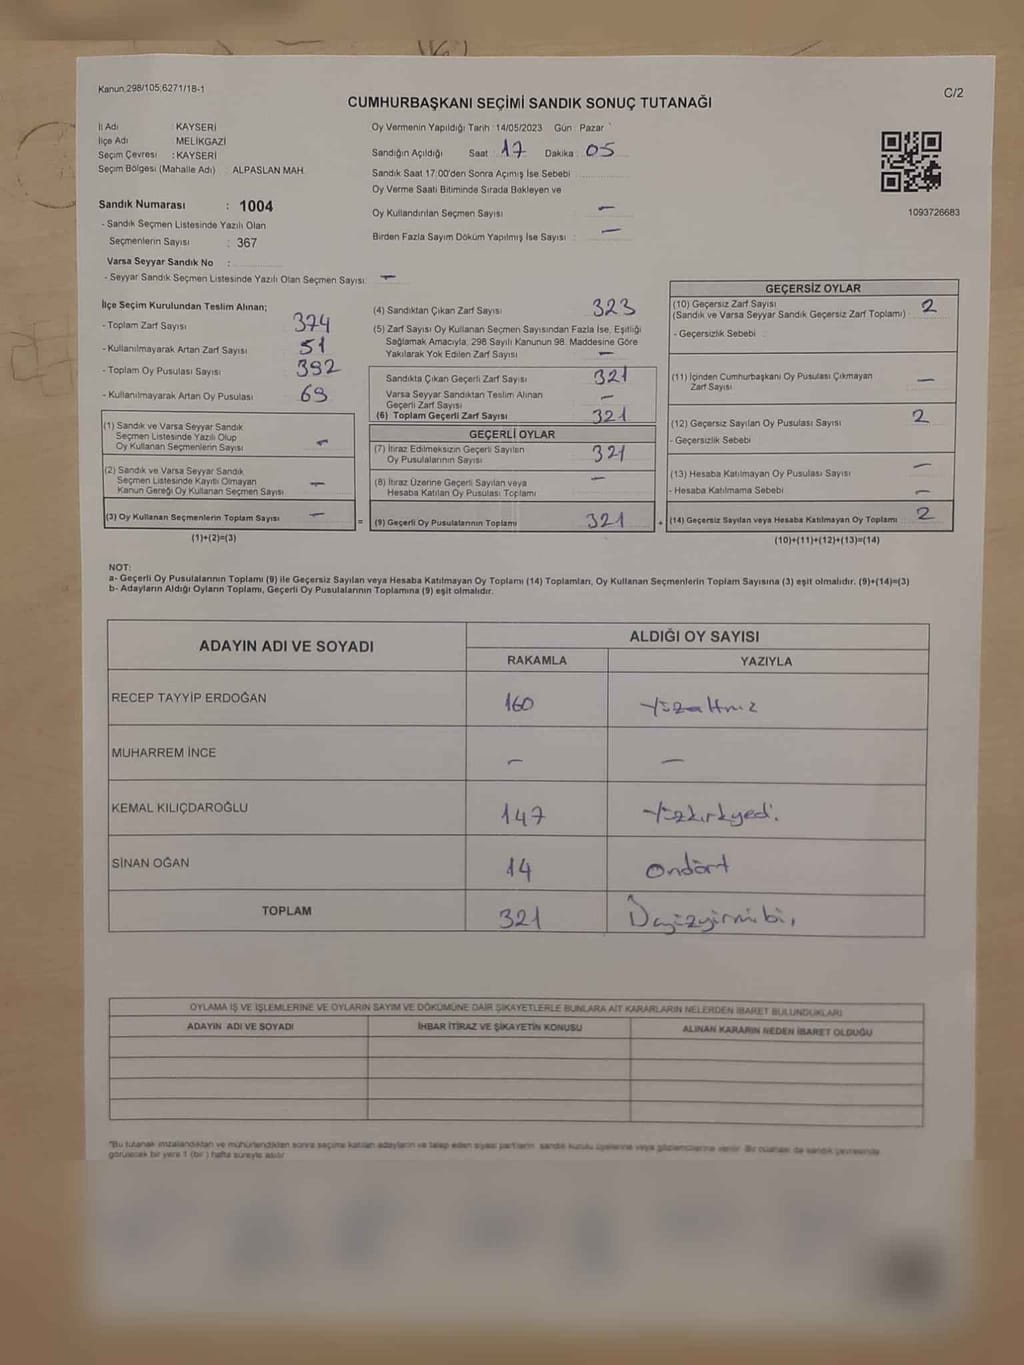 Kanun,298/105,6271/18-1
C/2
CUMHURBAŞKANI SEÇİMİ SANDIK SONUÇ TUTANAĞI
İl Adı : KAYSERİ
İlçe Adı MELİKGAZİ
Seçim Çevresi : KAYSERİ
Seçim Bölgesi (Mahalle Adı) : ALPASLAN MAH.
Oy Vermenin Yapıldığı Tarih :14/05/2023 Gün : Pazar
Sandığın Açıldığı Saat : 17 Dakika : 05
Sandık Saat 17:00'den Sonra Açımış İse Sebebi
Oy Verme Saati Bitiminde Sırada Bekleyen ve
Oy Kullandırılan Seçmen Sayısı : —
Birden Fazla Sayım Döküm Yapılmış İse Sayısı : —
1093726683
Sandık Numarası : 1004
- Sandık Seçmen Listesinde Yazılı Olan
Seçmenlerin Sayısı : 367
Varsa Seyyar Sandık No :
- Seyyar Sandık Seçmen Listesinde Yazılı Olan Seçmen Sayısı: —
İlçe Seçim Kurulundan Teslim Alınan;
- Toplam Zarf Sayısı 374
- Kullanılmayarak Artan Zarf Sayısı 51
- Toplam Oy Pusulası Sayısı 392
- Kullanılmayarak Artan Oy Pusulası 69
(1) Sandık ve Varsa Seyyar Sandık
Seçmen Listesinde Yazılı Olup
Oy Kullanan Seçmenlerin Sayısı —
(2) Sandık ve Varsa Seyyar Sandık
Seçmen Listesinde Kayıtlı Olmayan
Kanun Gereği Oy Kullanan Seçmen Sayısı —
(3) Oy Kullanan Seçmenlerin Toplam Sayısı —
(1)+(2)=(3)
=
(4) Sandıktan Çıkan Zarf Sayısı 323
(5) Zarf Sayısı Oy Kullanan Seçmen Sayısından Fazla İse, Eşitliği
Sağlamak Amacıyla; 298 Sayılı Kanunun 98. Maddesine Göre
Yakılarak Yok Edilen Zarf Sayısı —
Sandıkta Çıkan Geçerli Zarf Sayısı 321
Varsa Seyyar Sandıktan Teslim Alınan
Geçerli Zarf Sayısı —
(6) Toplam Geçerli Zarf Sayısı 321
GEÇERLİ OYLAR
(7) İtiraz Edilmeksizin Geçerli Sayılan
Oy Pusulalarının Sayısı 321
(8) İtiraz Üzerine Geçerli Sayılan veya
Hesaba Katılan Oy Pusulası Toplamı —
(9) Geçerli Oy Pusulalarının Toplamı 321
+
GEÇERSİZ OYLAR
(10) Geçersiz Zarf Sayısı 2
(Sandık ve Varsa Seyyar Sandık Geçersiz Zarf Toplamı) :
- Geçersizlik Sebebi :
(11) İçinden Cumhurbaşkanı Oy Pusulası Çıkmayan
Zarf Sayısı —
(12) Geçersiz Sayılan Oy Pusulası Sayısı 2
- Geçersizlik Sebebi
(13) Hesaba Katılmayan Oy Pusulası Sayısı —
- Hesaba Katılmama Sebebi —
(14) Geçersiz Sayılan veya Hesaba Katılmayan Oy Toplamı 2
(10)+(11)+(12)+(13)=(14)
NOT:
a- Geçerli Oy Pusulalarının Toplamı (9) ile Geçersiz Sayılan veya Hesaba Katılmayan Oy Toplamı (14) Toplamları, Oy Kullanan Seçmenlerin Toplam Sayısına (3) eşit olmalıdır. (9)+(14)=(3)
b- Adayların Aldığı Oyların Toplamı, Geçerli Oy Pusulalarının Toplamına (9) eşit olmalıdır.
ADAYIN ADI VE SOYADI
ALDIĞI OY SAYISI
RAKAMLA YAZIYLA
RECEP TAYYİP ERDOĞAN 160 Yüzaltmız
MUHARREM İNCE — —
KEMAL KILIÇDAROĞLU 147 Yüzkırkyedi.
SİNAN OĞAN 14 Ondört
TOPLAM 321 Üçyüzyirmibir
OYLAMA İŞ VE İŞLEMLERİNE VE OYLARIN SAYIM VE DÖKÜMÜNE DAİR ŞİKAYETLERLE BUNLARA AİT KARARLARIN NELERDEN İBARET BULUNDUKLARI
ADAYIN ADI VE SOYADI İHBAR İTİRAZ VE ŞİKAYETİN KONUSU ALINAN KARARIN NEDEN İBARET OLDUĞU
*Bu tutanak imzalandıktan ve mühürlendikten sonra seçime katılan adayların ve talep eden siyasi partilerin sandık kurulu üyelerine veya gözlemcilerine verilir. Bir nüshası da sandık çevresinde
görülecek bir yere 1 (bir ) hafta süreyle asılır